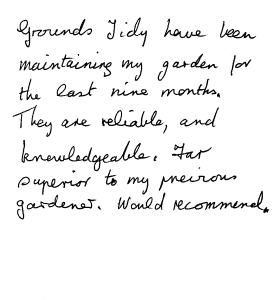 Grounds Tidy have been
maintaining my garden for
the last nine months.
They are reliable, and
knowledgeable. Far
superior to my previous
gardener. Would recommend.